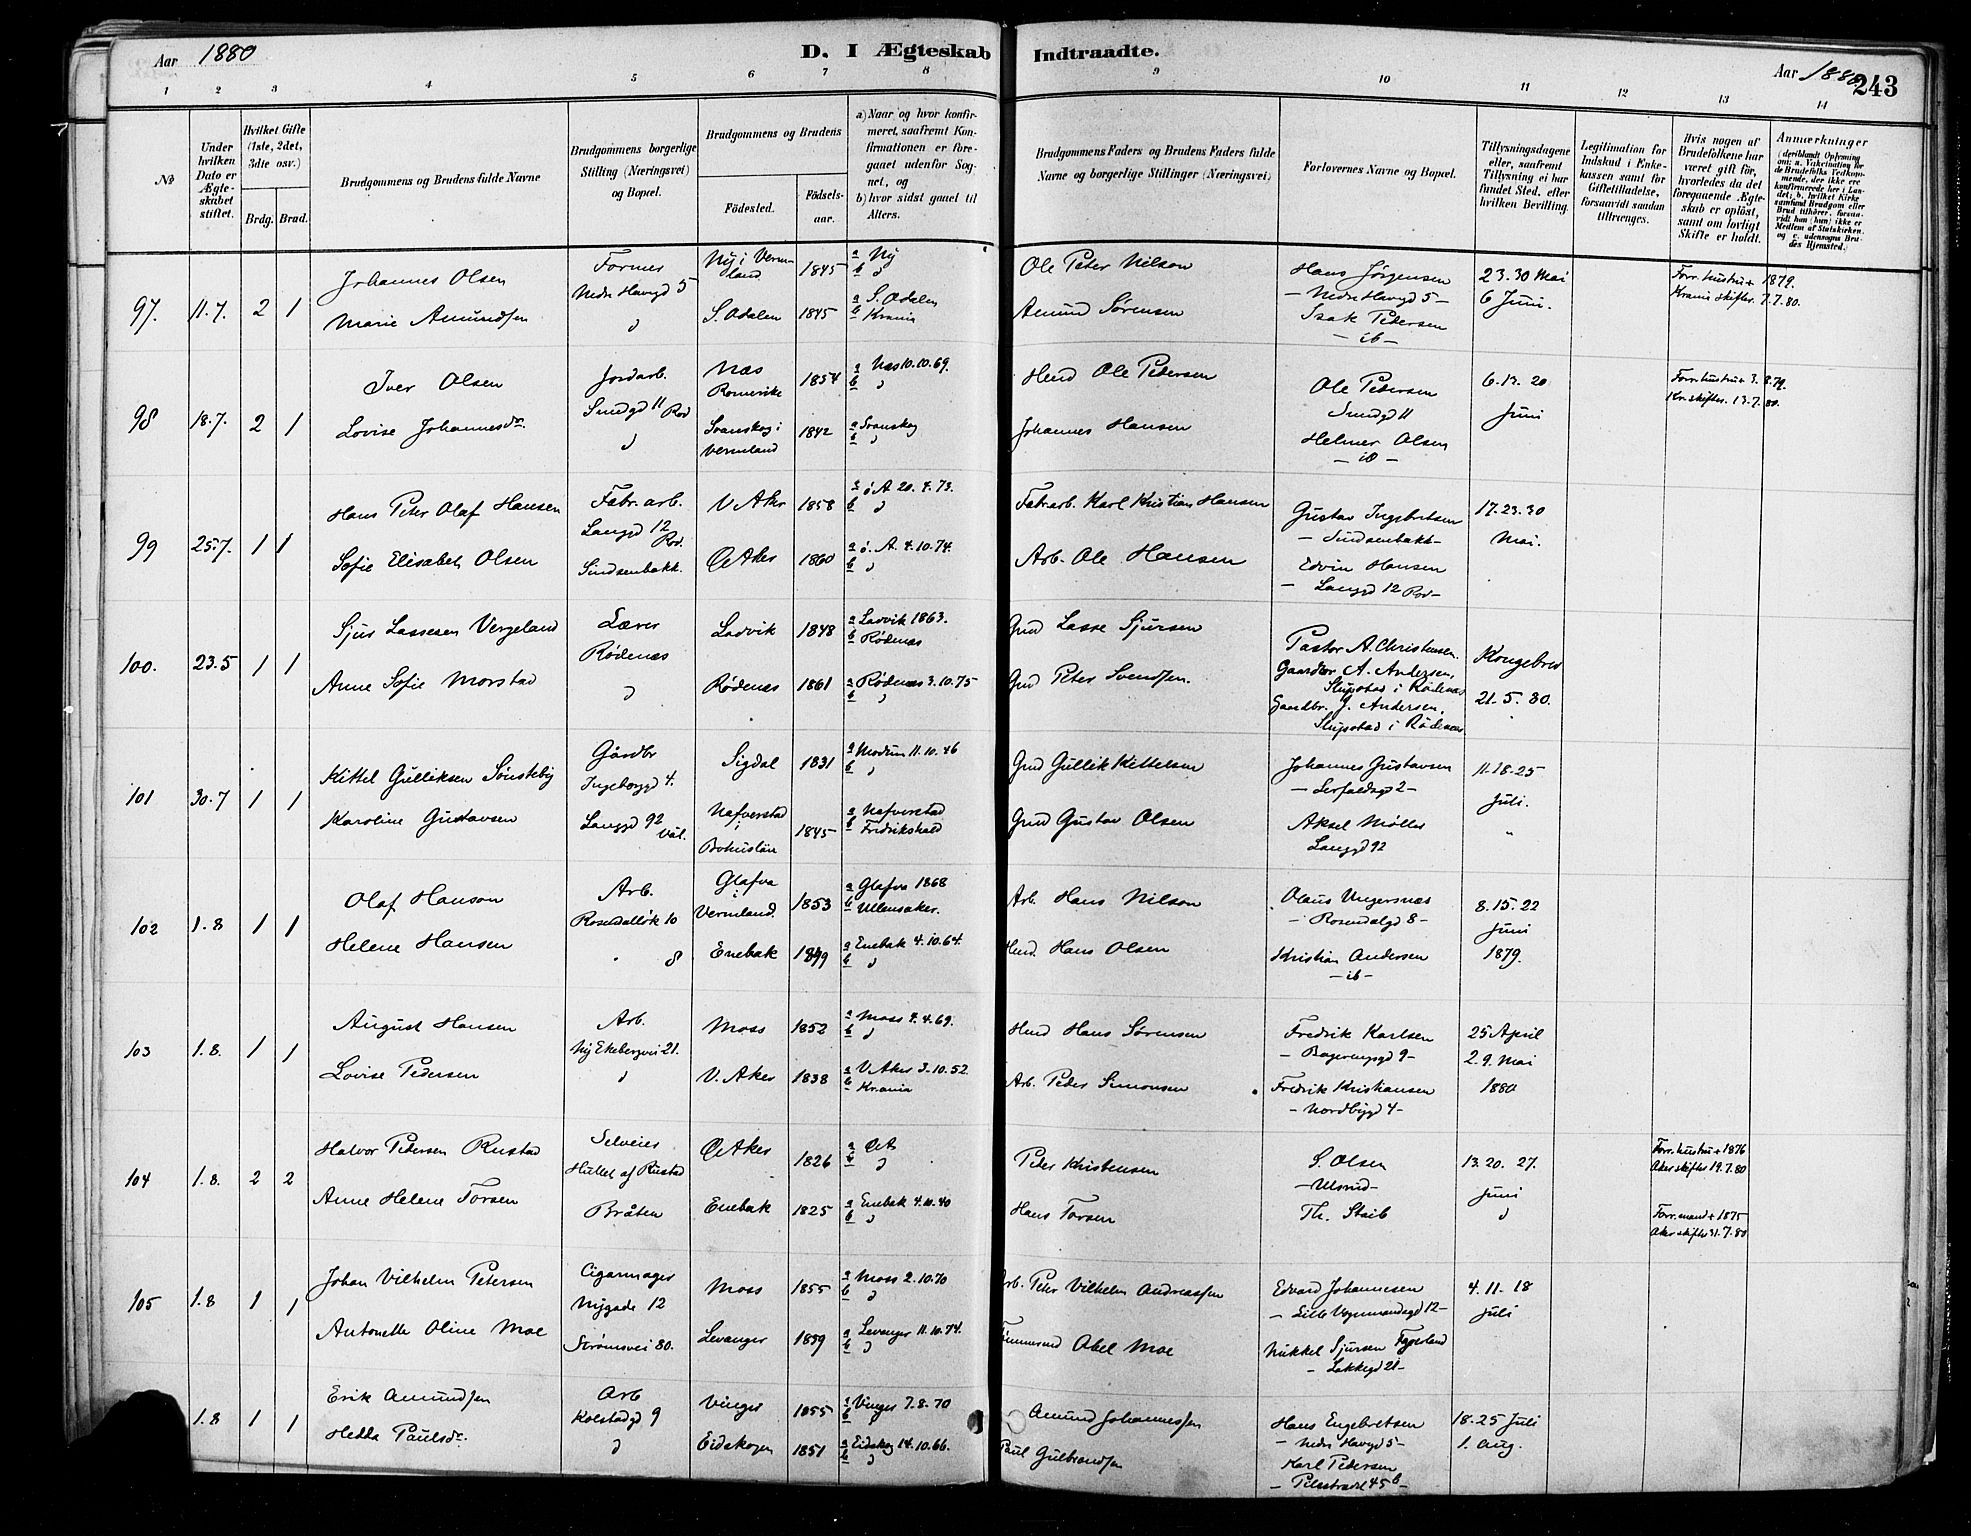 Aar 1880
D. I Ægteskab Indtraadte.
Aar 1880
243
1 2 3 4 5 6 7 8 9 10 11 12 13 14
No
Under hvilken Dato er Ægteskabet stiftet.
Hvilket Gifte (1ste, 2det, 3die osv.)
Brdg. Brud.
Brudgommens og Brudens fulde Navne
Brudgommens borgerlige Stilling (Næringsvei) og Bopæl.
Brudgommens og Brudens
Fødested.
Fødselsaar.
a) Naar og hvor konfirmeret, saafremt Konfirmationen er foregaaet udenfor Sognet, og
b) hvor sidst gaaet til Alters.
Brudgommens Faders og Brudens Faders fulde Navne og borgerlige Stillinger (Næringsvei)
Forlovernes Navne og Bopæl.
Tillysningsdagene eller, saafremt Tillysning ei har fundet Sted, efter hvilken Bevilling.
Legitimation for Indskud i Enkekassen samt for Giftetilladelse, forsaavidt saadan tiltrænges.
Hvis nogen af Brudefolkene har været gift før, hvorledes da det foregaaende Ægteskab er opløst, samt om lovligt Skifte er holdt.
Anmærkninger
97. 11.7. 2 1
Johannes Olsen
Former
Nedre Havegd 5
Ny i Vermland 1845
a Ny
b "
Ole Peter Nilson
Hans Jørgensen
- Nedre Havegd 5 -
23. 30 Mai
6 Juni.
Forr. hustru + 1879.
Krania skifter. 7.7.80.
Marie Amundsen
"
S. Odalen 1845
a S. Odalen
b Krania
Amund Sørensen
Isak Pedersen
- ib -
98 18.7. 2 1
Iver Olsen
Jordarb.
Smedgd 11 Rod
Næs Romerike 1854
a Næs 10.10.69.
b "
Hend Ole Pedersen
Ole Pedersen
Smedgd 11
6. 13. 20
Juni
Forr. hustru + 3.8.79.
Kr. skifter. 13.7.80.
Lovise Johannesdr
"
Svanskog i Vermland 1842
a Svanskog
b "
Johannes Hansen
Helmer Olsen
- ib -
99 25.7. 1 1
Hans Peter Olaf Hansen
Fabr. arb.
Langgd 12 Rod.
V. Aker 1858
a Ø. A 20.4.73.
b "
Fabr. arb. Karl Kristian Hansen
Gustav Ingebretsen
- Sinsenbakk -
17. 23. 30
Mai.
Sofie Elisabeth Olsen
Sindsenbakk.
Ø. Aker 1860
a Ø. A. 4.10.74.
b "
Arb. Ole Hansen
Edvin Hansen
- Langgd 12 Rod -
100. 23.5 1 1
Sjur Lassesen Vergeland
Lærer
Rødenæs
Ladvik 1848
a Ladvik 1863.
b Rødenæs
Gmd Lasse Sjursen
Pastor A. Christensen.
Gaardbr A. Andersen,
Slupstad i Rødenæs
Kongebrev
21.5.80.
Anne Sofie Morstad
"
Rødenæs 1861
a Rødenæs 3.10.75
b "
Gmd Peter Svendsen.
Gaardbr. J. Andersen,
Slupstad i Rødenæs
101 30.7 1 1
Kittel Gulliksen Sønsteby
Gårdbr
Ingeborgd 4.
Sigdal 1831
a Modum 11.10.46
b "
Gmd Gullik Kittelsen
Johannes Gustavsen
11. 18. 25
Juli.
Karoline Gustavsen
Langgd 92 Vål.
Nafverstad i Bohuslän 1845
a Nafverstad
b Fredrikshald
Gmd Gustav Olsen
Aksel Møller
Langgd 92
102 1.8 1 1
Olaf Hanson
Arb.
Rosendalløk 10
Glafva i Vermland. 1853
a Glafva 1868
b Ullensaker.
Arb. Hans Nilson
Olaus Ungersnæs
- Rosendalgd 8 -
8. 15. 22
Juni
1879.
Helene Hansen
" 8
Enebak 1849
a Enebak 4.10.64.
b "
Hend. Hans Olsen
Kristian Andersen
- ib -
103 1.8. 1 1
August Hansen
Arb.
Ny Ekebergvei 21.
Moss 1852
a Moss 4.4.69.
b "
Hend Hans Sørensen
Fredrik Karlsen
25 April
2. 9. Mai
1880
Lovise Pedersen
"
V. Aker 1838
a V. Aker 3.10.52.
b Krania
Arb. Peder Simonsen
Fredrik Kristiansen
- Nordbygd 4 -
104 1.8. 2 2
Halvor Pedersen Rustad
Selveier
Hullet af Rustad
Ø. Aker 1826
a Ø A
b "
Peter Kristensen
S. Olsen
- Ulsrud -
13. 20. 27.
Juni
"
Forr. hustru + 1876
Aker skifter 19.7.80
Anne Helene Torsen
Bråten
Enebak 1825
a Enebak 4.10.40
b "
Hans Torsen
Th. Staib
Forr. mand + 1875
Aker skifter 31.7.80
105 1.8 1 1
Johan Vilhelm Petersen
Cigarmager
Nygade 12
Moss 1855
a Moss 2.10.70
b "
Arb. Peter Vilhelm Andreassen
Edvard Johannesen
- Lille Vognmandsgd 12 -
4. 11. 18
Juli
Antonette Oline Moe
Strømsvei 80.
Levanger 1859
a Levanger 11.10.74.
b "
Tømmermd Abel Moe
Mikkel Sjursen
- Lakkegd 21 -
1.8 1 1
Erik Amundsen
Arb
Kolstadgd 9
Vinger 1855
a Vinger 7.8.70
b "
Amund Johannessen
Hans Engebretsen
- Nedre Havegd 5 -
18. 25 Juli
1. Aug.
Hedda Paulsdr
"
Eidskogen 1851
a Eidskog 14.10.66.
b "
Paul Gulbrandsen
Karl Pedersen
- Pilestrædet 45 b -